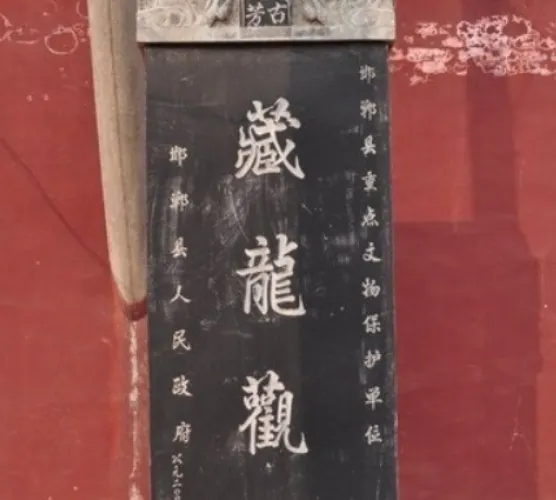 古芳
邯郸县重点文物保护单位
藏龍觀
邯郸县人民政府
公元二〇